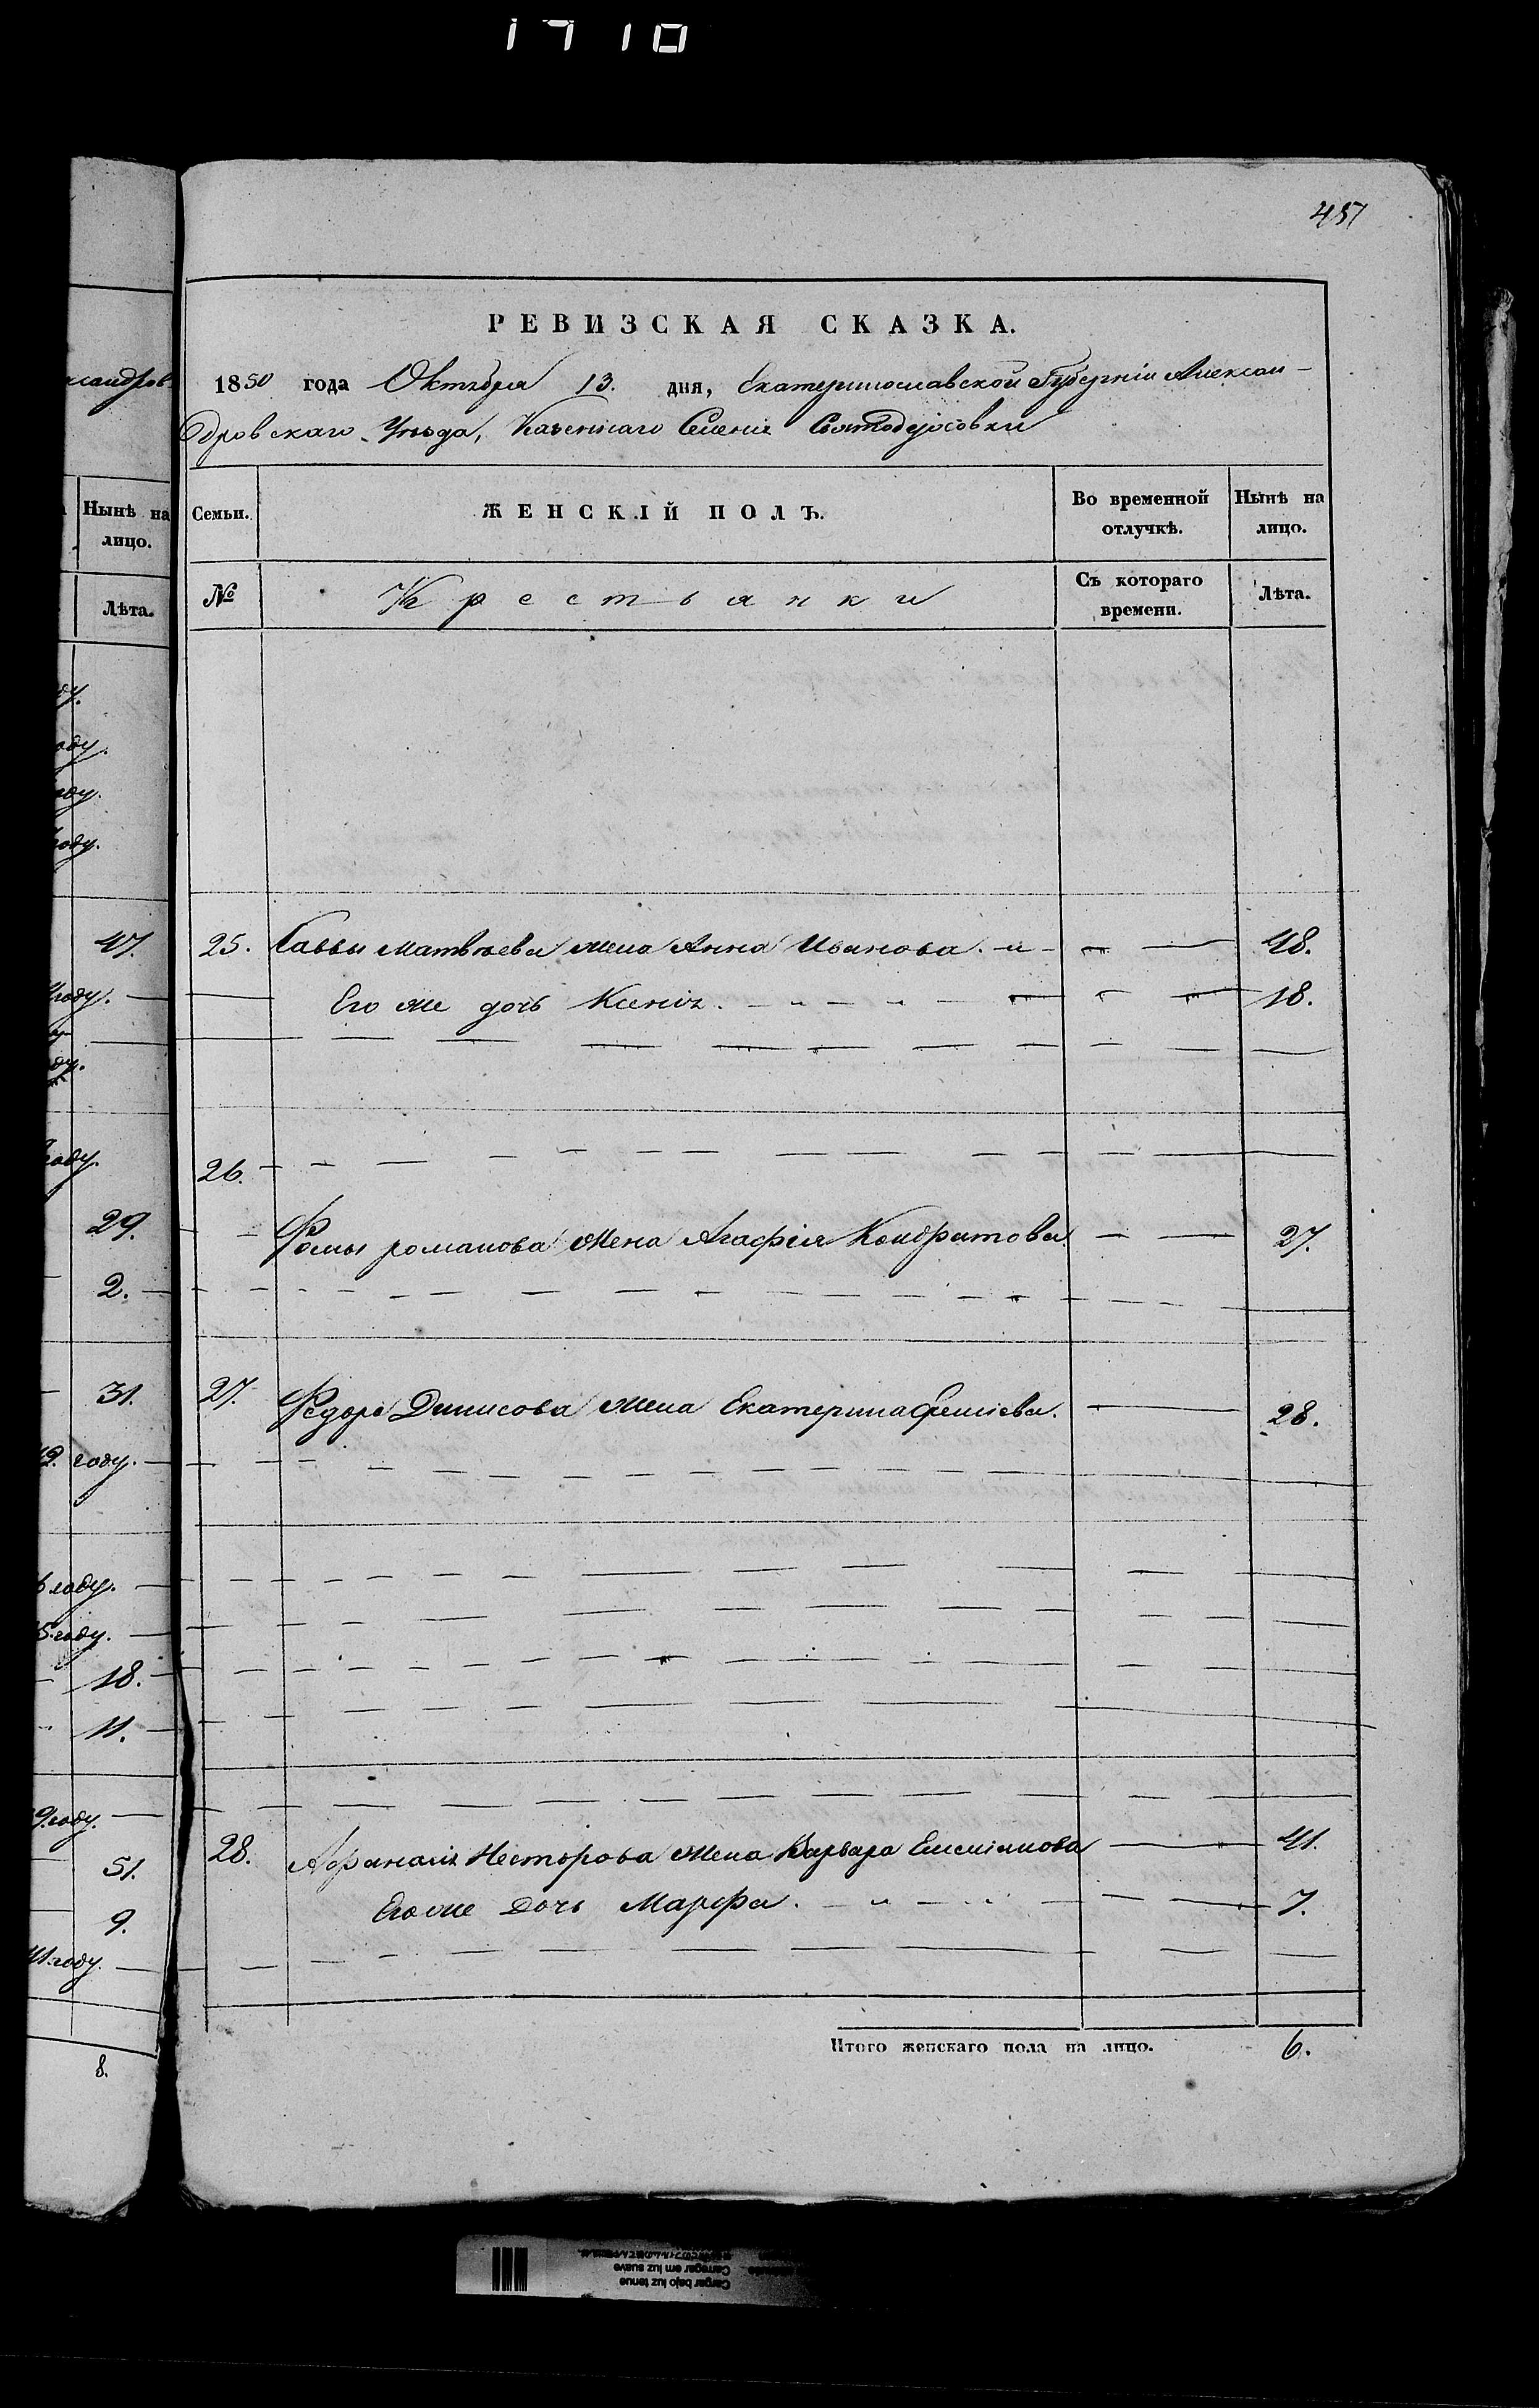 1710
457
РЕВИЗСКАЯ СКАЗКА.
1850 года Октября 13. дня, Екатеринославской Губерніи Алексан-
дровскаго Уѣзда, Казеннаго Селенія
ксандров-
Нынѣ на
лицо.
Лѣта.
Семьи.
ЖЕНСКІЙ ПОЛЪ.
Во временной
отлучкѣ.
Нынѣ на
лицо.
№
Крестьянки
Съ котораго
времени.
Лѣта.
оду.
оду.
году.
47.
25. Саввы Матвѣева жена Анна Иванова. 48.
году.
Его же дочь Ксенія. 18.
году.
26.
29.
Фомы романова жена Агафія Кондратова. 27.
2.
31.
27. Федора Денисова жена Екатерина 28.
году.
году.
5. году.
18.
11.
9. году.
28. Афанасія Несторова жена Варвара Емеліянова 41.
51.
Его же Дочь Марфа. 7.
9.
41 году.
Итого женскаго пола на лицо. 6.
8.
Cargar bajo luz tenue
Carregar em luz suave